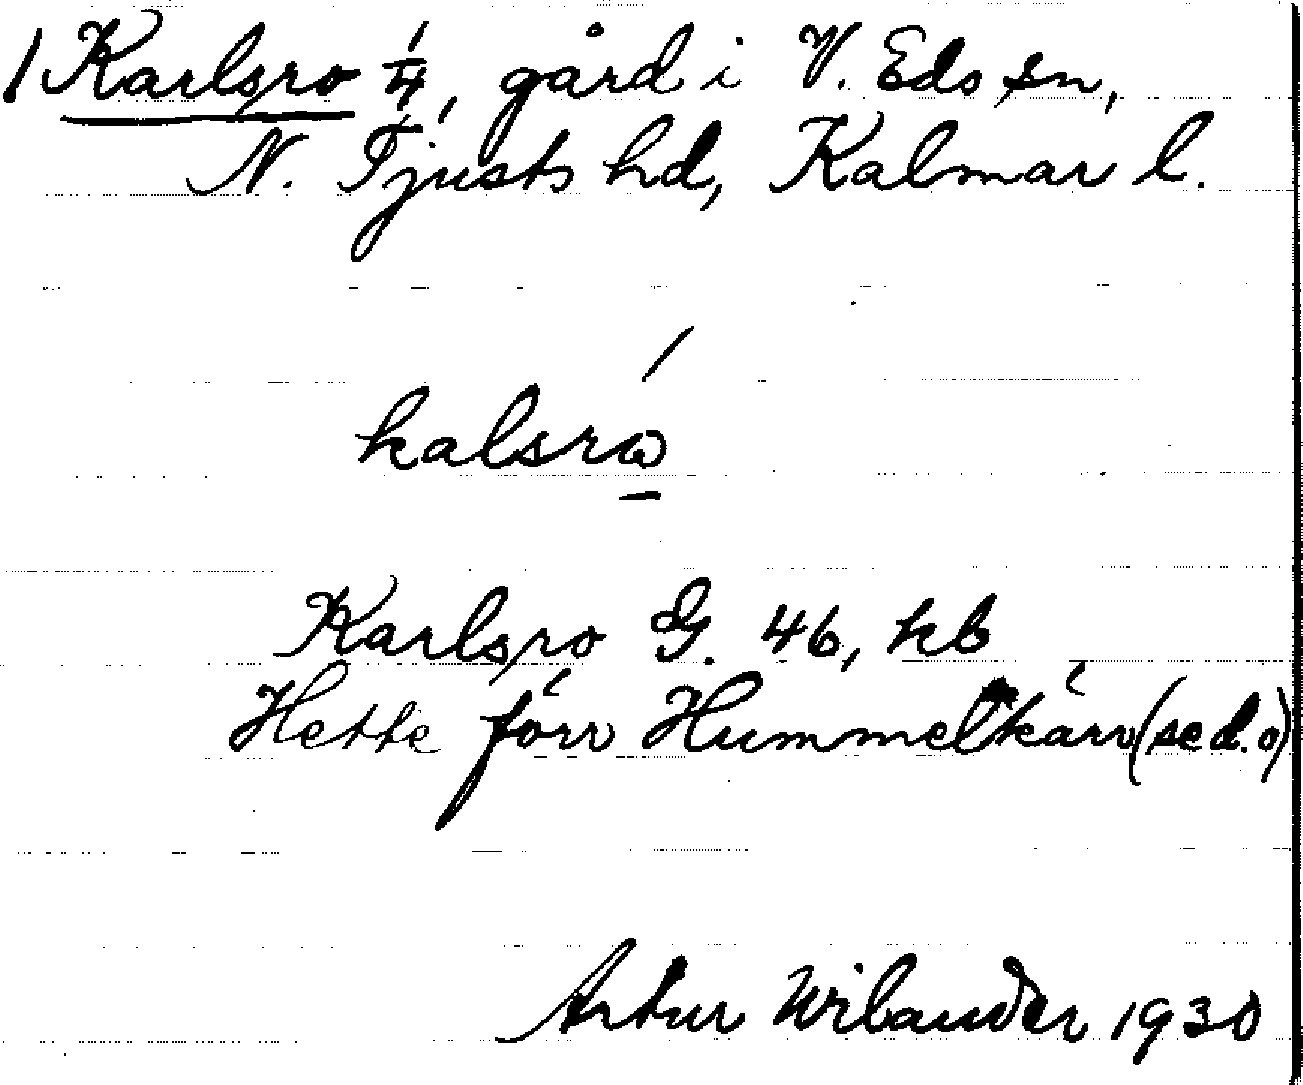 1 Karlsro 1/4, gård i V. Eds sn,
N. Tjusts hd, Kalmar l.
kalsrω
Karlsro G. 46, kb
Hette förr Hummelkärr (se d. o)
Artur Wilander 1930